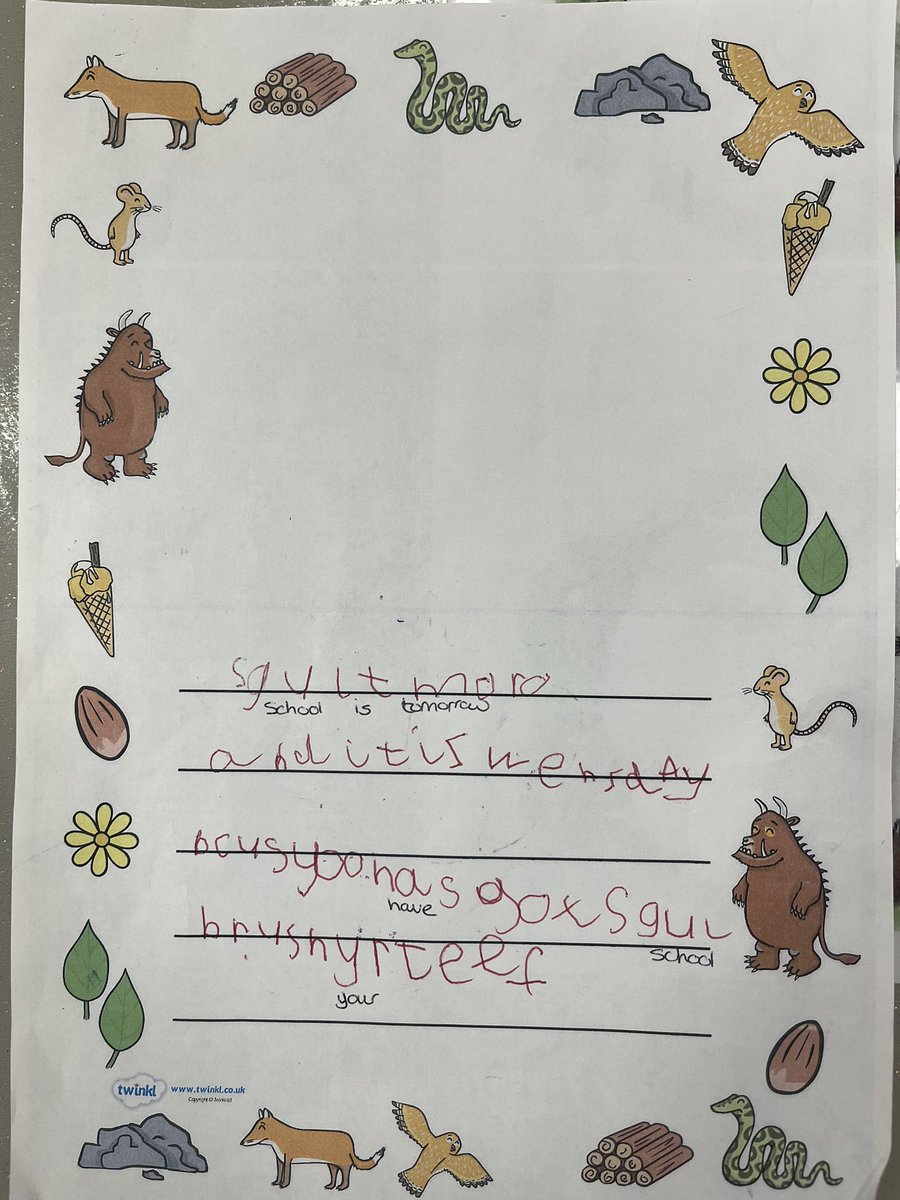 sgul it moro
school is tomorrow
and it is wensdAy
brusyoo has gox sgul
have
school
brush yr teef
your
twinkl www.twinkl.co.uk